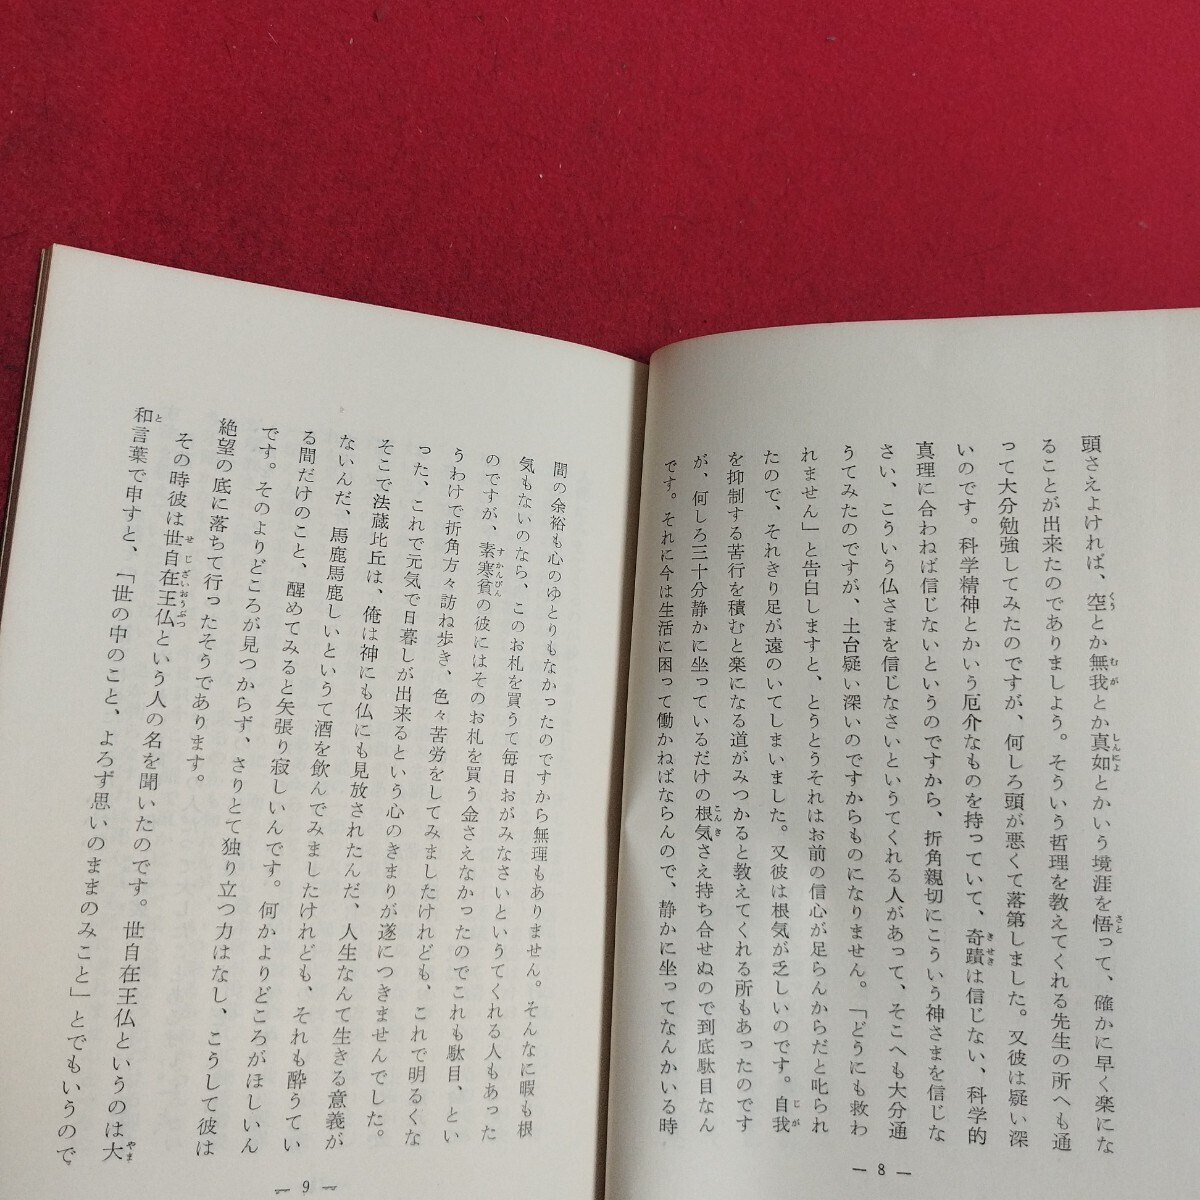 頭さえよければ、空とか無我とか真如とかいう境涯を悟って、確かに早く楽にな
ることが出来たのでありましょう。そういう哲理を教えてくれる先生の所へも通
って大分勉強してみたのですが、何しろ頭が悪くて落第しました。又彼は疑い深
いのです。科学精神とかいう厄介なものを持っていて、奇蹟は信じない、科学的
真理に合わねば信じないというのですから、折角親切にこういう神さまを信じな
さい、こういう仏さまを信じなさいというてくれる人があって、そこへも大分通
うてみたのですが、土台疑い深いのですからものになりません。「どうにも救わ
れません」と告白しますと、とうとうそれはお前の信心が足らんからだと叱られ
たので、それきり足が遠のいてしまいました。又彼は根気が乏しいのです。自我
を抑制する苦行を積むと楽になる道がみつかると教えてくれる所もあったのです
が、何しろ三十分静かに坐っているだけの根気さえ持ち合せぬので到底駄目なん
です。それに今は生活に困って働かねばならんので、静かに坐ってなんかいる時
— 8 —
間の余裕も心のゆとりもなかったのですから無理もありません。そんなに暇も根
気もないのなら、このお札を買うて毎日おがみなさいというてくれる人もあった
のですが、素寒貧の彼にはそのお札を買う金さえなかったのでこれも駄目、とい
うわけで折角方々訪ね歩き、色々苦労をしてみましたけれども、これで明るくな
った、これで元気で日暮しが出来るという心のきまりが遂につきませんでした。
そこで法蔵比丘は、俺は神にも仏にも見放されたんだ、人生なんて生きる意義が
ないんだ、馬鹿馬鹿しいというて酒を飲んでみましたけれども、それも酔うてい
る間だけのこと、醒めてみると矢張り寂しいんです。何かよりどころがほしいん
です。そのよりどころが見つからず、さりとて独り立つ力はなし、こうして彼は
絶望の底に落ちて行ったそうであります。
その時彼は世自在王仏という人の名を聞いたのです。世自在王仏というのは大
和言葉で申すと、「世の中のこと、よろず思いのままのみこと」とでもいうので
— 9 —